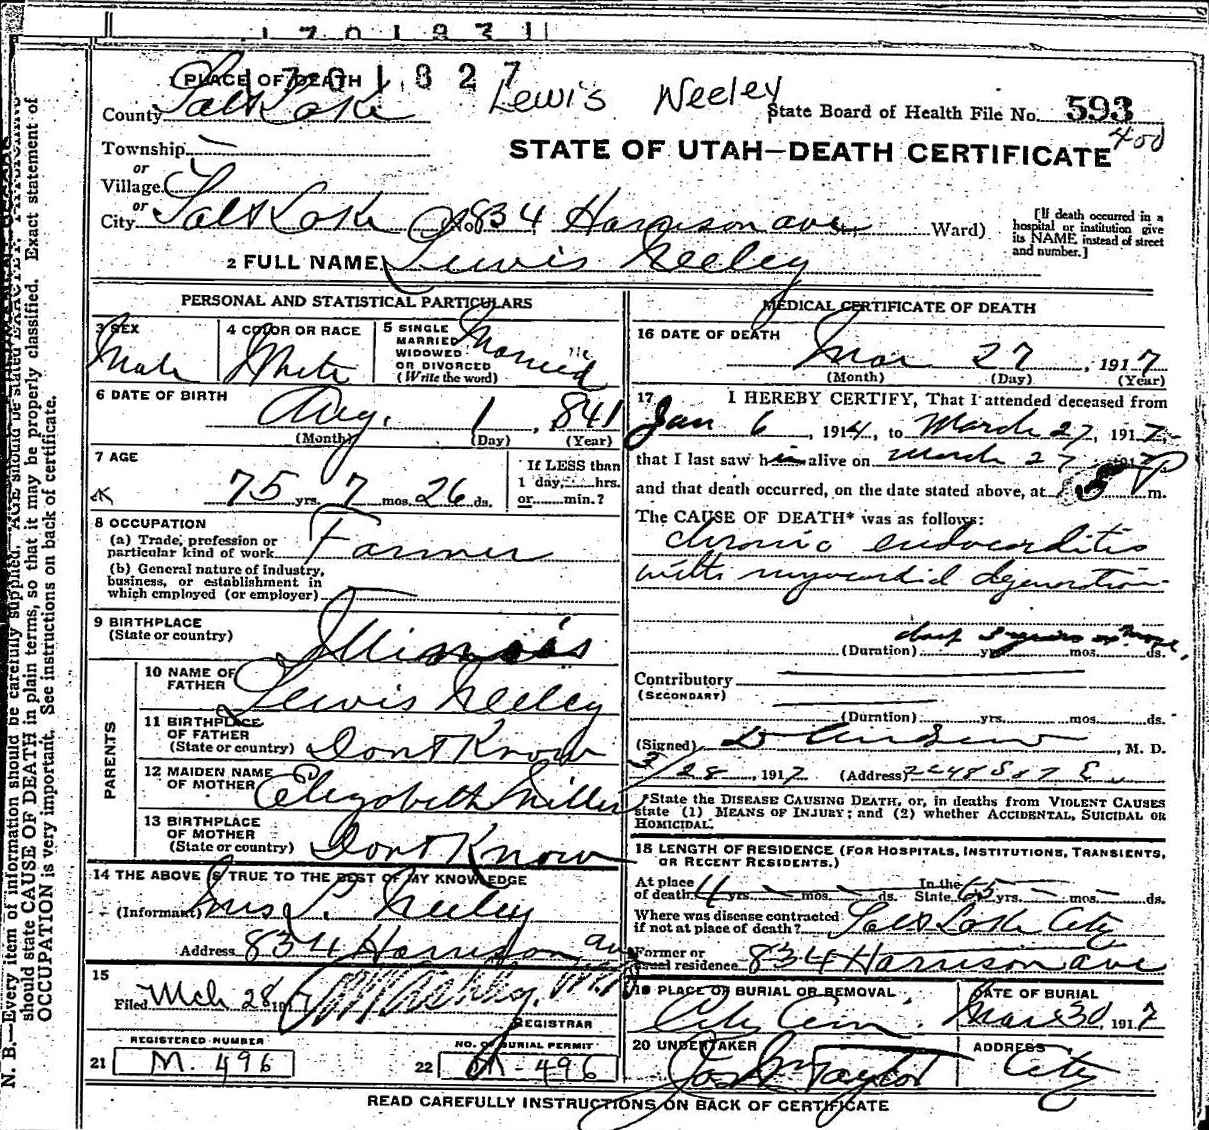 1701827
Lewis Neeley
1 PLACE OF DEATH
County Salt Lake
State Board of Health File No. 593
400
Township —
STATE OF UTAH—DEATH CERTIFICATE
or
Village
or
City Salt Lake No. 834 Harrison ave St., Ward)
[If death occurred in a hospital or institution give its NAME instead of street and number.]
2 FULL NAME Lewis Neeley
PERSONAL AND STATISTICAL PARTICULARS
3 SEX Male
4 COLOR OR RACE White
5 SINGLE MARRIED WIDOWED OR DIVORCED (Write the word) Married
6 DATE OF BIRTH Aug. 1, 841
(Month) (Day) (Year)
7 AGE
75 yrs. 7 mos. 26 ds.
If LESS than 1 day, hrs. or min.?
8 OCCUPATION
(a) Trade, profession or particular kind of work Farmer
(b) General nature of industry, business, or establishment in which employed (or employer)
9 BIRTHPLACE
(State or country) Illinois
PARENTS
10 NAME OF FATHER Lewis Neeley
11 BIRTHPLACE OF FATHER
(State or country) Dont Know
12 MAIDEN NAME OF MOTHER Elizabeth Miller
13 BIRTHPLACE OF MOTHER
(State or country) Dont Know
14 THE ABOVE IS TRUE TO THE BEST OF MY KNOWLEDGE
(Informant) Mrs L. Neeley
Address 834 Harrison ave
15
Filed Mch 28 1917
REGISTRAR
REGISTERED NUMBER
21 M. 496
NO. OF BURIAL PERMIT
22 M-496
MEDICAL CERTIFICATE OF DEATH
16 DATE OF DEATH
Mar 27, 1917
(Month) (Day) (Year)
17 I HEREBY CERTIFY, That I attended deceased from
Jan 6, 1914, to March 27, 1917
that I last saw him alive on March 27 1917
and that death occurred, on the date stated above, at 5 P m.
The CAUSE OF DEATH* was as follows:
chronic endocarditis
with myocardial degeneration
(Duration) yrs. mos. ds.
Contributory
(SECONDARY)
(Duration) yrs. mos. ds.
(Signed) , M. D.
3/28, 1917 (Address)
*State the DISEASE CAUSING DEATH, or, in deaths from VIOLENT CAUSES
state (1) MEANS OF INJURY; and (2) whether ACCIDENTAL, SUICIDAL OR
HOMICIDAL.
18 LENGTH OF RESIDENCE (FOR HOSPITALS, INSTITUTIONS, TRANSIENTS, OR RECENT RESIDENTS.)
At place of death 4 yrs. — mos. — ds. In the State 65 yrs. — mos. — ds.
Where was disease contracted if not at place of death? Salt Lake City
Former or usual residence 834 Harrison ave
19 PLACE OR BURIAL OR REMOVAL City Cem.
DATE OF BURIAL Mar 30, 1917
20 UNDERTAKER Jos Wm Taylor
ADDRESS City
READ CAREFULLY INSTRUCTIONS ON BACK OF CERTIFICATE
N. B.—Every item of information should be carefully supplied. AGE should be stated EXACTLY.
should state CAUSE OF DEATH in plain terms, so that it may be properly classified. Exact statement of
OCCUPATION is very important. See instructions on back of certificate.